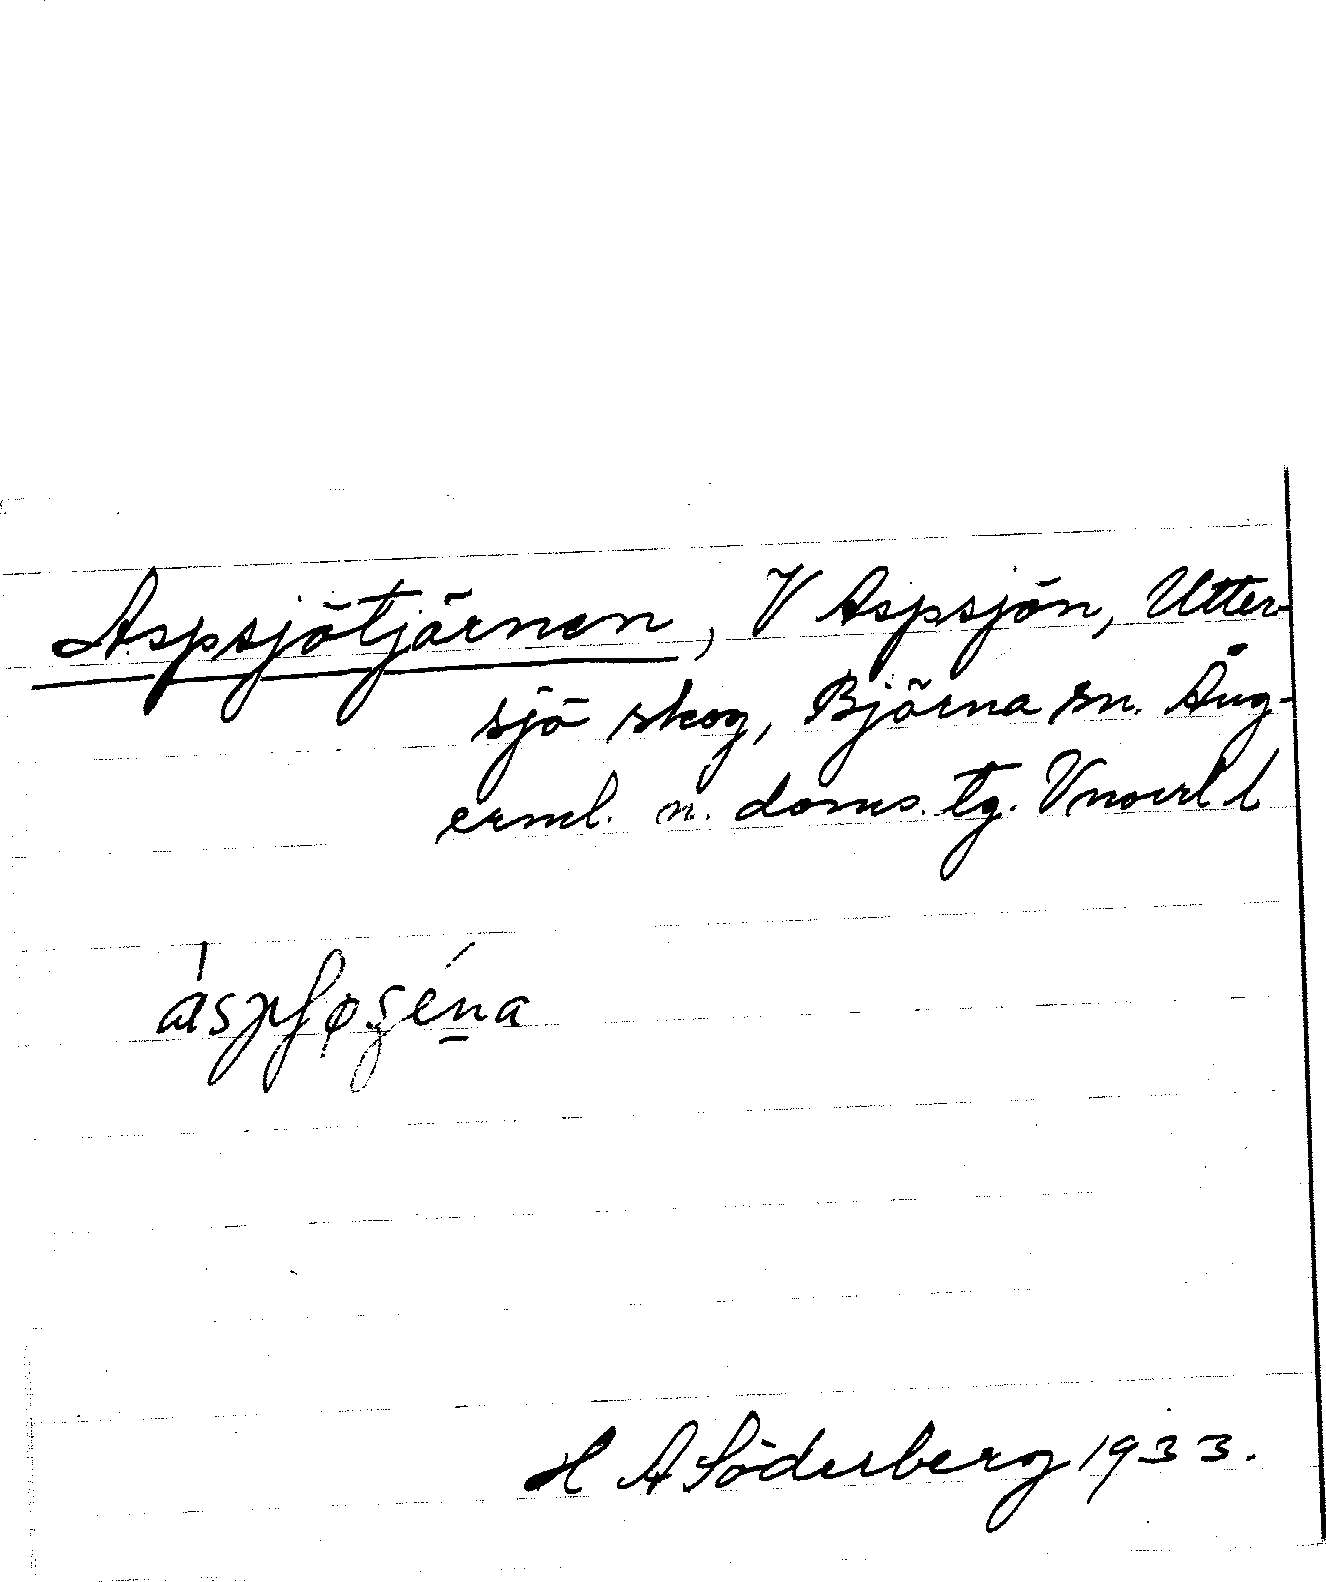 Aspsjötjärnen, V Aspsjön, Utter-
sjö skog, Björna sn. Ång-
erml. n. doms. tg. Vnorrl l
H A Söderberg 1933.